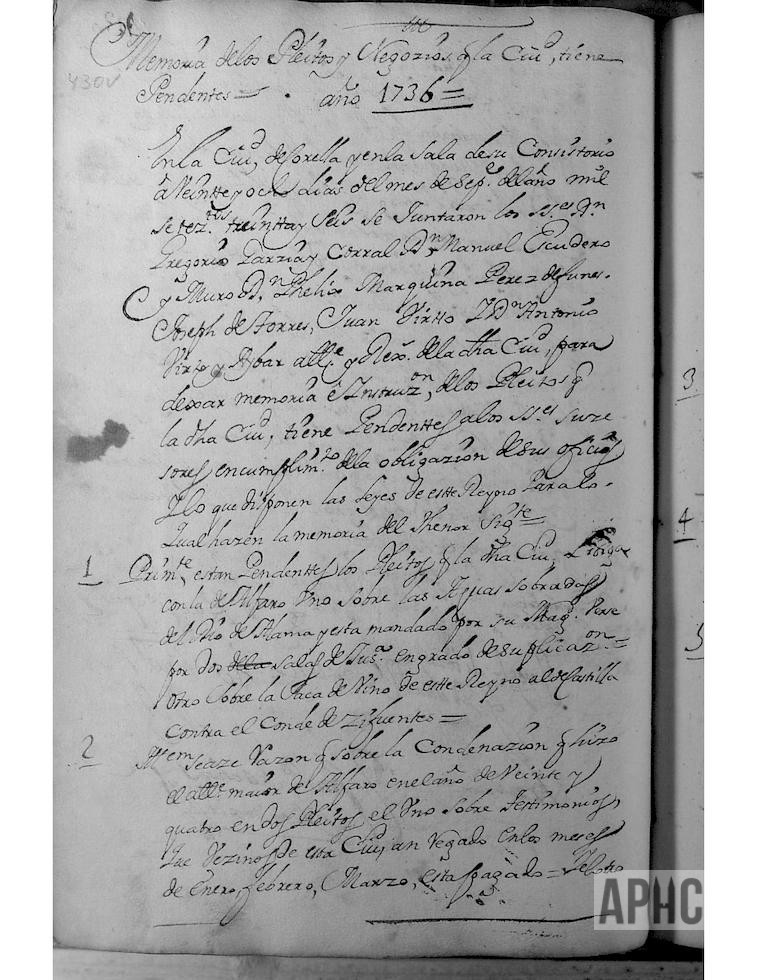 430v
Memoria de los Pleitos y Negozios q̃ la Ciud, tiene
Pendentes = . año 1736 =
En la Ciud, de Corella y en la Sala de su Consistorio
a Veintte y ocho dias del mes de Sepe. del año mil
setezos. treintta y Seis se Juntaron los ss.es Dn
Gregorio Garzia y Corral Dn Manuel Escudero
y Muro Dn, Phelix Marquina Perez de funes.
Joseph de Torres, Juan Virtto I Dn Antonio
Virto y Aybar alle. y Rexs. de la dha Ciud, para
dexar memoria e Instruzon, de los Pleitos q̃
la dha Ciud, tiene Pendenttes a los ss.es suze
sores en cumplimto. de la obligazion de sus oficios
Y lo que disponen las Leyes de este Reyno Para lo.
qual hazen la memoria del Thenor Sigte =
1 Primte, estan Pendenttes los Pleitos q̃ la dha Ciud,
con la de Alfaro Vno Sobre las Aguas sobradas
del Rio de Alama y esta mandado por su Magd.
por dos de la salas de Jusa. en grado de Suplicazon. =
Otro Sobre la Saca de Vino de este Reyno al de Castilla
contra el Conde de Zifuentes =
2 Ittem Seaze Razon q̃ sobre la Condenazion q̃ hizo
el alle. maior de Alfaro en el año de Veinte y
quatro en dos Pleitos el Vno sobre Testimonios
que Vezinos de esta Ciud, an Regado en los meses
de Enero, febrero, Marzo, esta pagado = Y el otro
3
4
5
APHC